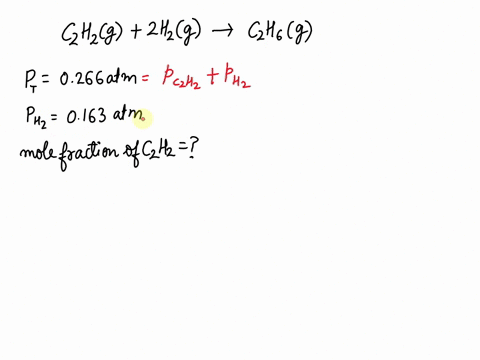 C₂H₂(g) + 2H₂(g) → C₂H₆(g)
P_T = 0.266 atm = P_C₂H₂ + P_H₂
P_H₂ = 0.163 atm
mole fraction of C₂H₂ = ?